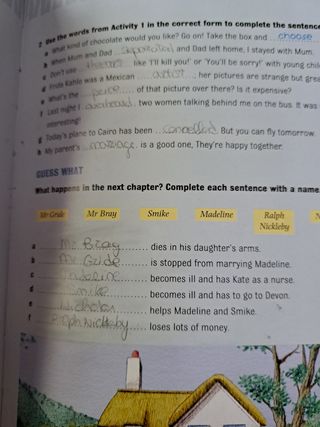 2 Use the words from Activity 1 in the correct form to complete the sentence
a What kind of chocolate would you like? Go on! Take the box and choose
b When Mum and Dad separated and Dad left home, I stayed with Mum.
c Don't use threats like 'I'll kill you!' or 'You'll be sorry!' with young chil
d Frida Kahlo was a Mexican artist; her pictures are strange but grea
e What's the price of that picture over there? Is it expensive?
f Last night I overheard two women talking behind me on the bus. It was
interesting!
g Today's plane to Cairo has been cancelled. But you can fly tomorrow.
h My parent's marriage is a good one, They're happy together.
GUESS WHAT
What happens in the next chapter? Complete each sentence with a name
Mr Gride Mr Bray Smike Madeline Ralph Nickleby N
a Mr. Bray dies in his daughter's arms.
b Mr Gride is stopped from marrying Madeline.
c Madeline becomes ill and has Kate as a nurse.
d Smike becomes ill and has to go to Devon.
e Nicholas helps Madeline and Smike.
f Ralph Nickleby loses lots of money.